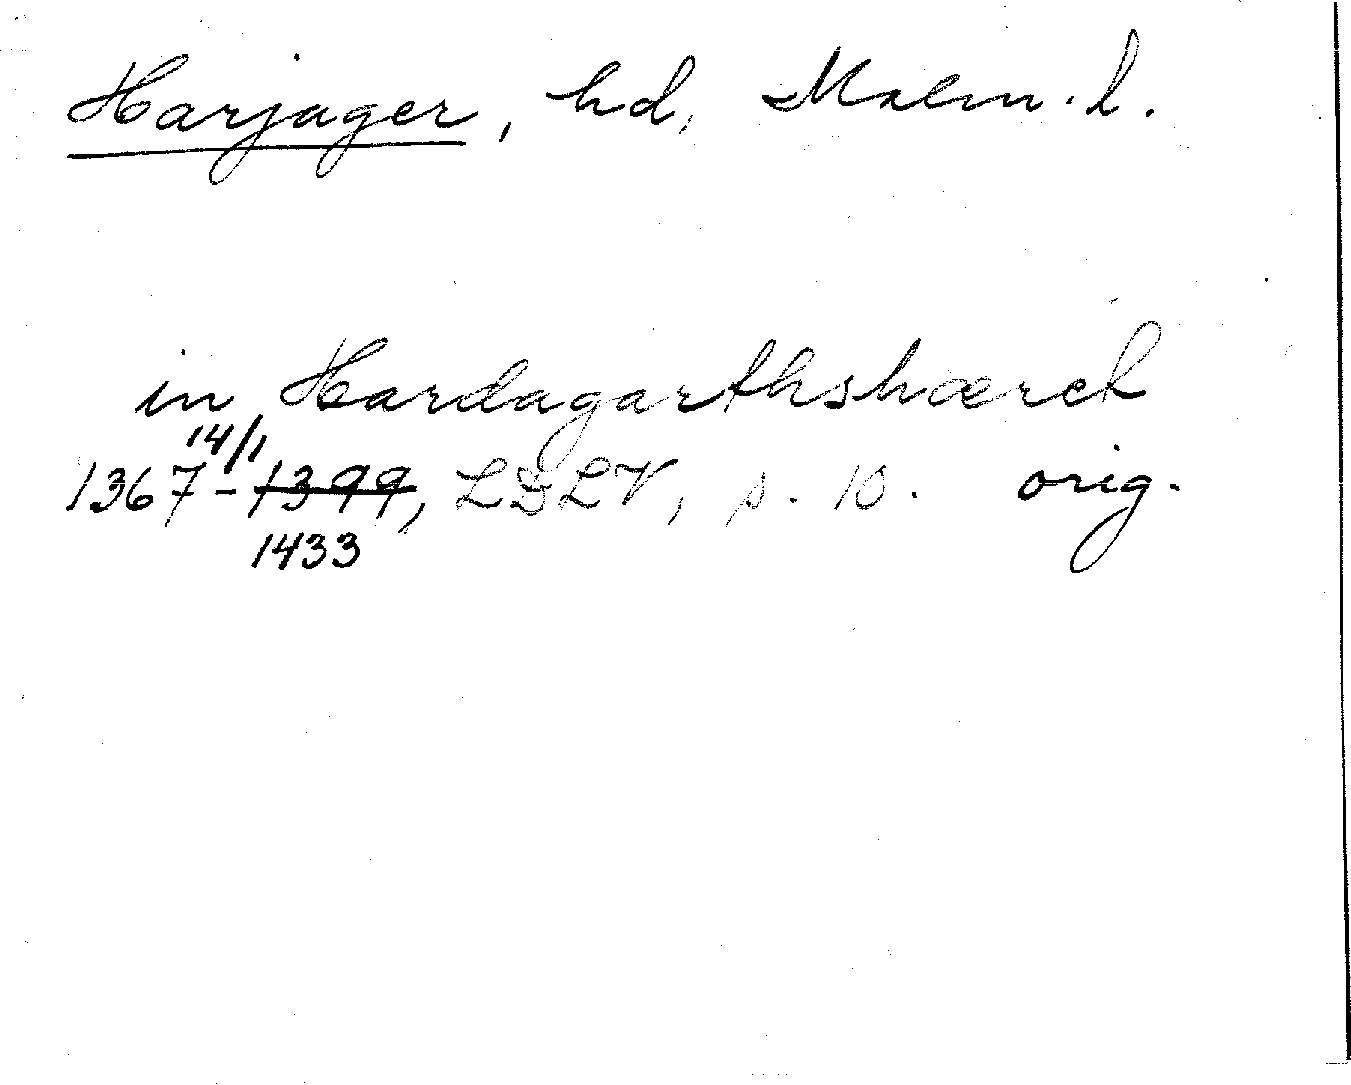 Harjager, hd, Malm. l.
in Hardagarthshæret
14/1
1367-1399, LDLV, s. 10. orig.
1433